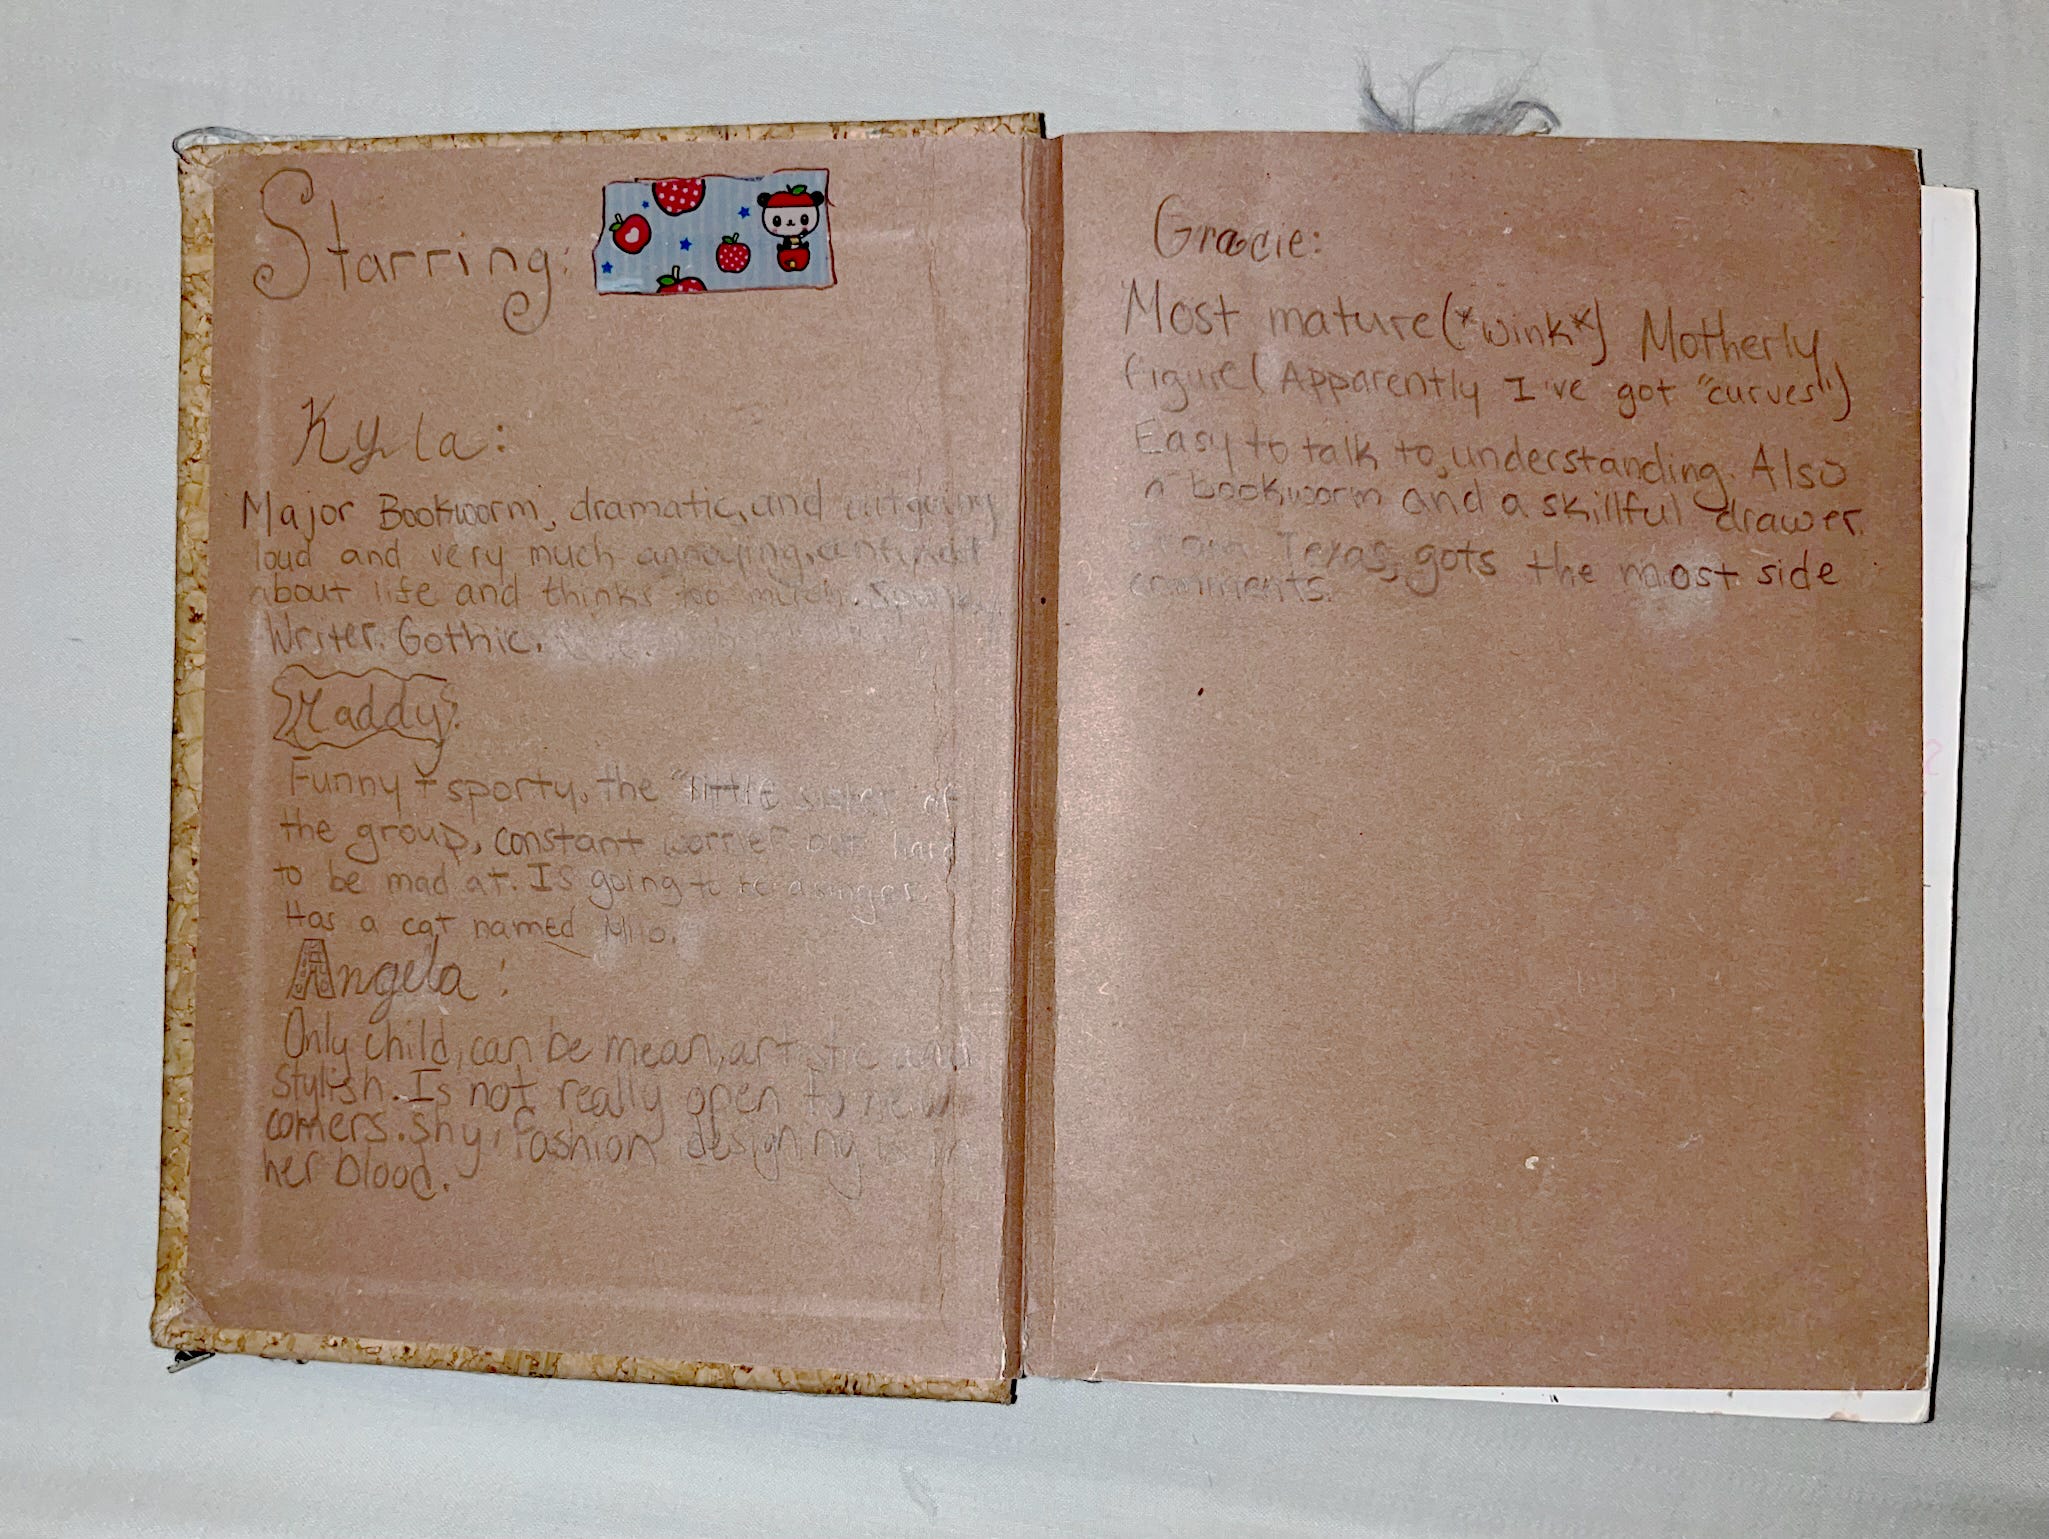 Starring:
Kyla:
Major Bookworm, dramatic, and outgoing
loud and very much annoying,
about life and thinks too much.
Writer. Gothic.
Maddy:
Funny + sporty, the "little sister of
the group, constant worrier but hard
to be mad at. Is going to be a singer.
Has a cat named Milo.
Angela:
Only child, can be mean, artistic and
stylish. Is not really open to new
comers. shy, fashion designing is in
her blood.
Gracie:
Most mature (*wink*) Motherly
figure (Apparently I've got "curves")
Easy to talk to, understanding. Also
a bookworm and a skillful drawer.
From Texas, gots the most side
comments.